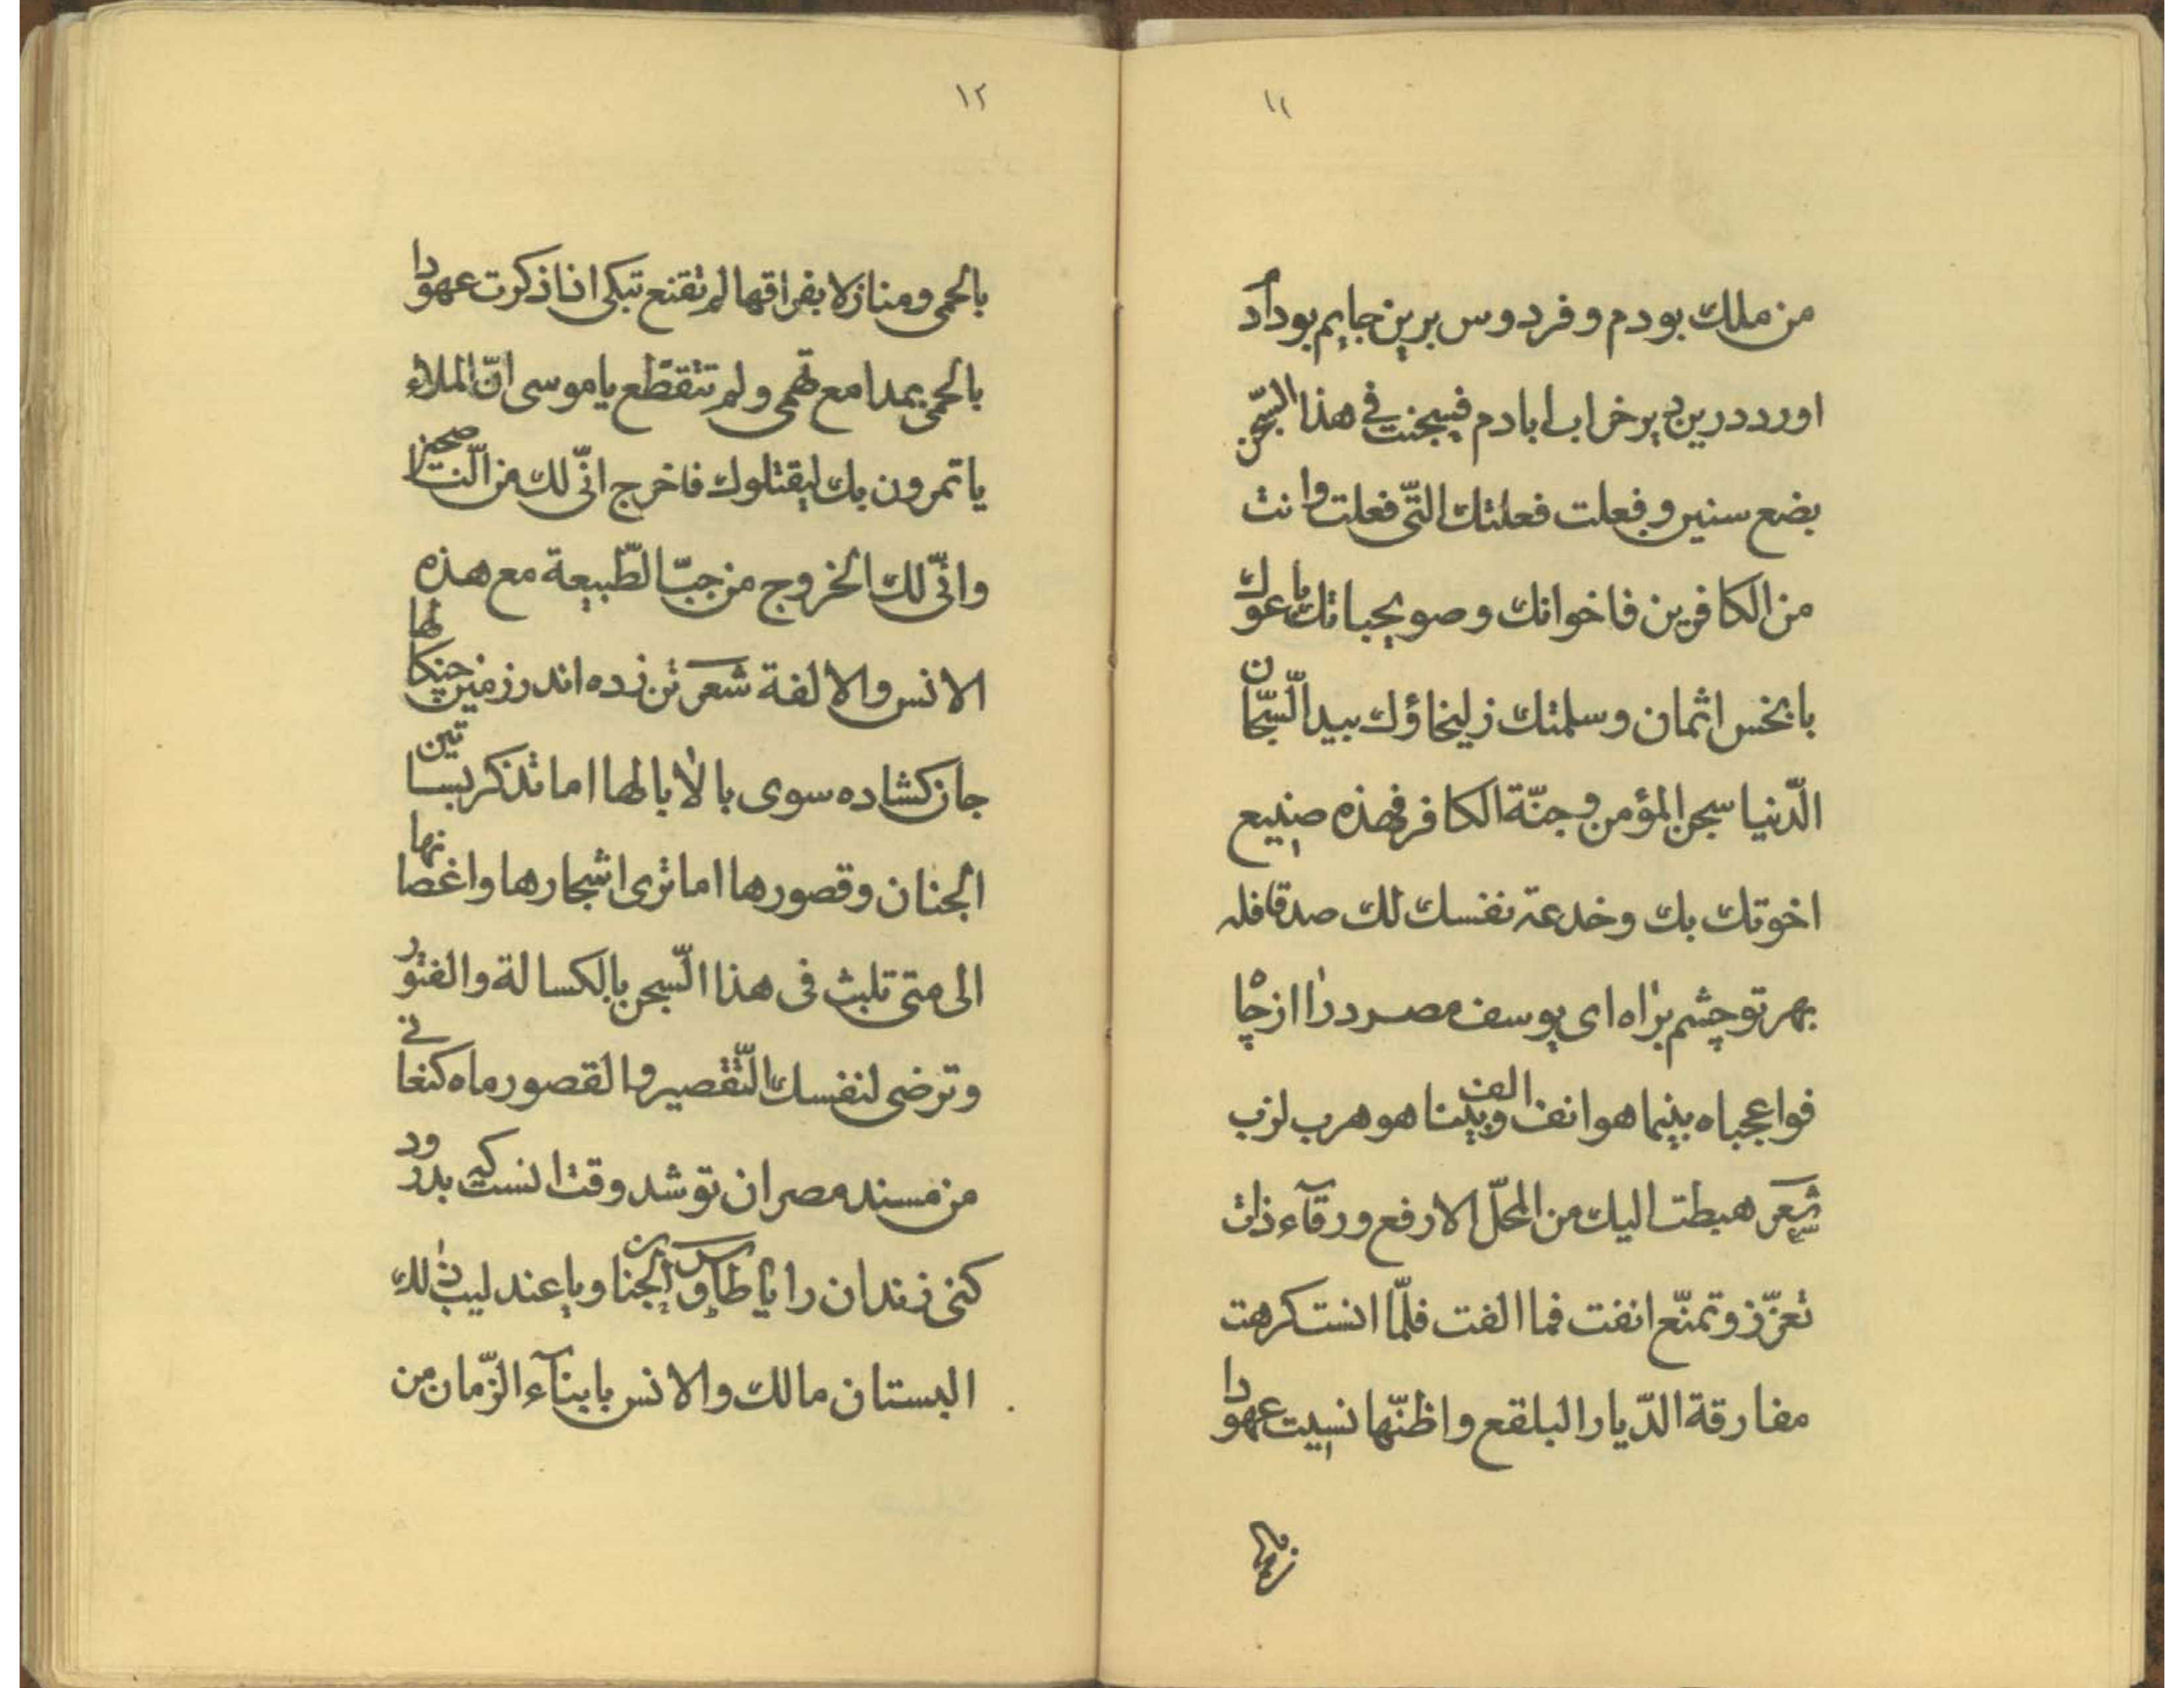 ١١
من ملك بودم و فردوس برین جایم بود آد
اورد درین دیر خراب ابادم فسجنت فی هذا السّجن
بضع سنین و فعلت فعلتك الّتی فعلت و انت
من الكافرین فاخوانك و صویحباتك باعوك
بابخس اثمان و سلمتك زلیخاؤك بید السّجّان
الدّنیا سجن المؤمن و جنّة الكافر فهذه صنیع
اخوتك بك و خدعة نفسك لك صد قافله
بهر تو چشم براه ای یوسف مصر درا از چاه
فواعجباه بینما هو انف الف و بینا هو هرب لزب
شعر هبطت الیك من المحلّ الارفع ورقآء ذات
تعزّز و تمنّع انفت فما الفت فلمّا انست كرهت
مفارقة الدّیار البلقع و اظنّها نسیت عهودا
١٢
بالحمی و منازلا بفراقها لم تقنع تبكی اذا ذكرت عهودا
بالحمی بمدامع تهمی و لم تتقطّع یا موسی انّ الملاء
یاتمرون بك لیقتلوك فاخرج انّی لك من النّاصحین
و انّی لك الخروج من جبّ الطّبیعة مع هذه
الانس و الالفة شعر تن زده اندر زمین چنكالها
جان كشاده سوی بالا بالها اما تذكر بساتین
الجنان و قصورها اما تری اشجارها و اغصانها
الی متی تلبث فی هذا السّجن بالكسالة و الفتور
و ترضی لنفسك التّقصیر و القصور ماه كنعانی
من مسند مصر ان تو شد وقت انست كه بدرود
كنی زندان را یا طاوس الجنان و یا عندلیب ذلك
البستان مالك و الانس بابنآء الزّمان من